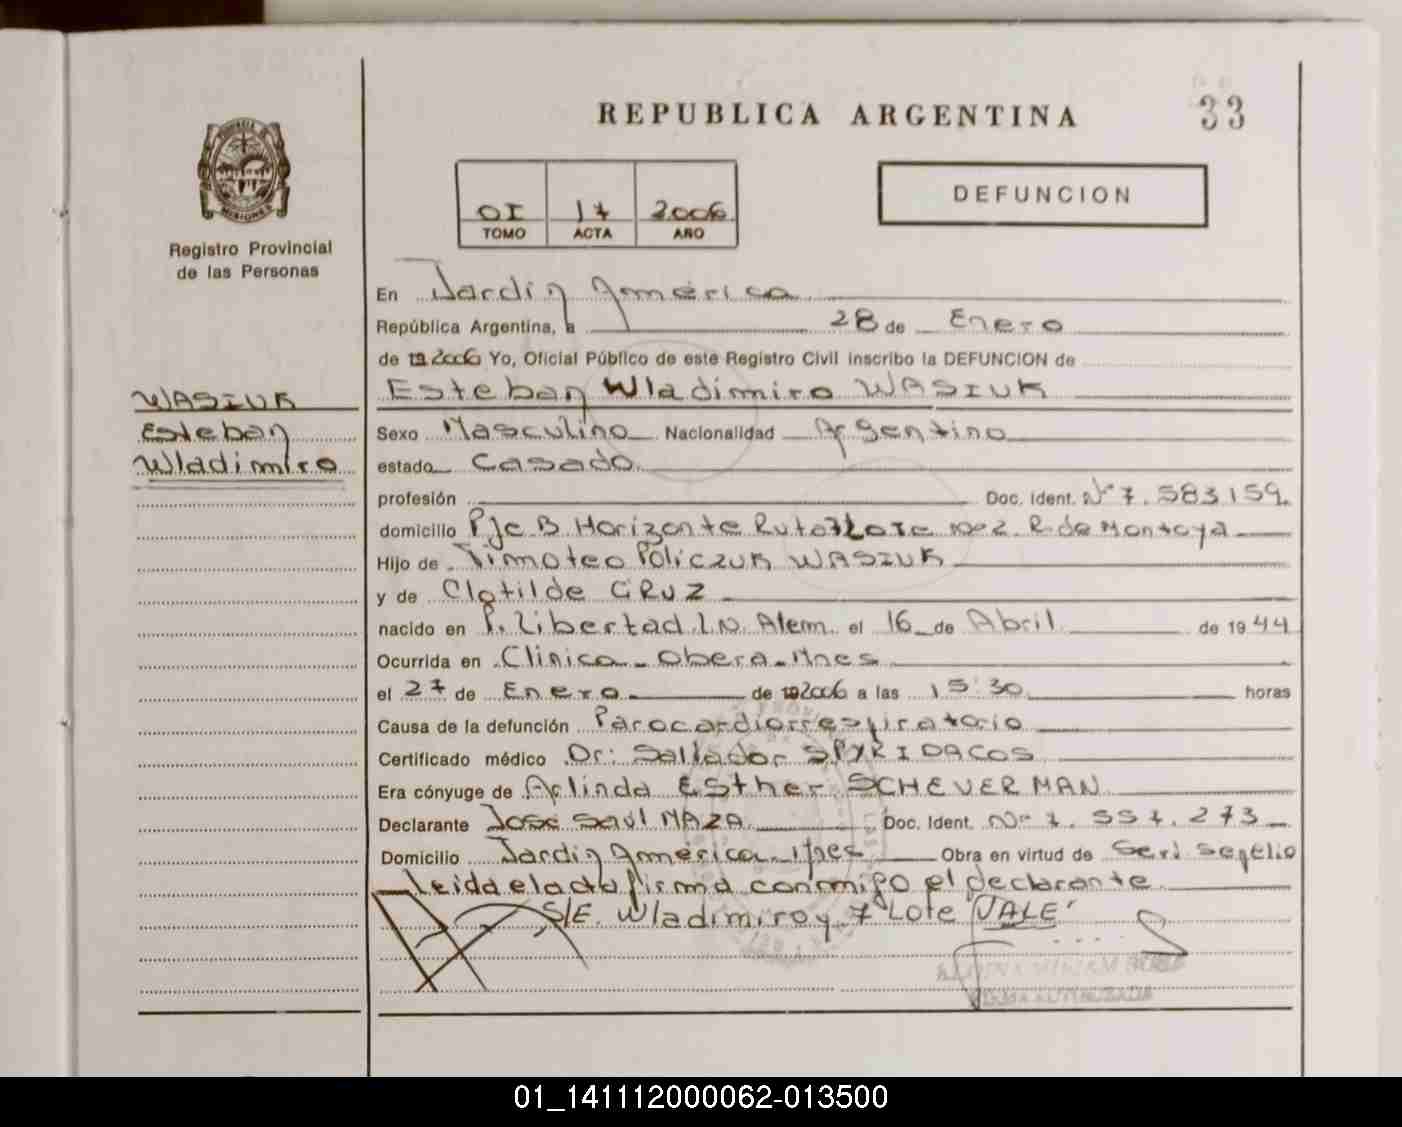 REPUBLICA ARGENTINA
33
PROVINCIA DE
MISIONES
Registro Provincial
de las Personas
DEFUNCION
01 17 2006
TOMO ACTA AÑO
En Jardín América
República Argentina, a 28 de Enero
de 19 2006 Yo, Oficial Público de este Registro Civil inscribo la DEFUNCION de
Esteban Wladimiro WASIUK
WASIUK
Esteban
Wladimiro
Sexo Masculino Nacionalidad Argentino
estado Casado
profesión Doc. Ident. Nº 7.583159.
domicilio Pje B. Horizonte Ruta 7 Lote nº 2 R. de Montoya
Hijo de Timoteo Policzuk WASIUK
y de Clotilde CRUZ
nacido en P. Libertad L.N. Alem. el 16 de Abril de 1944
Ocurrida en Clinica - Obera - Mnes
el 27 de Enero de 19 2006 a las 15:30 horas
Causa de la defunción Parocardiorrespiratorio
Certificado médico Dr: Sallador SPYRIDACOS
Era cónyuge de Arlinda Esther SCHEVERMAN
Declarante José Saul MAZA Doc. Ident. Nº 7.557.273
Domicilio Jardín América - Mnes Obra en virtud de Serv. Sepelio
Leida el acta firma conmigo el declarante
S/E. Wladimiro y 7 Lote "VALE"
FIRMA AUTORIZADA
01_141112000062-013500